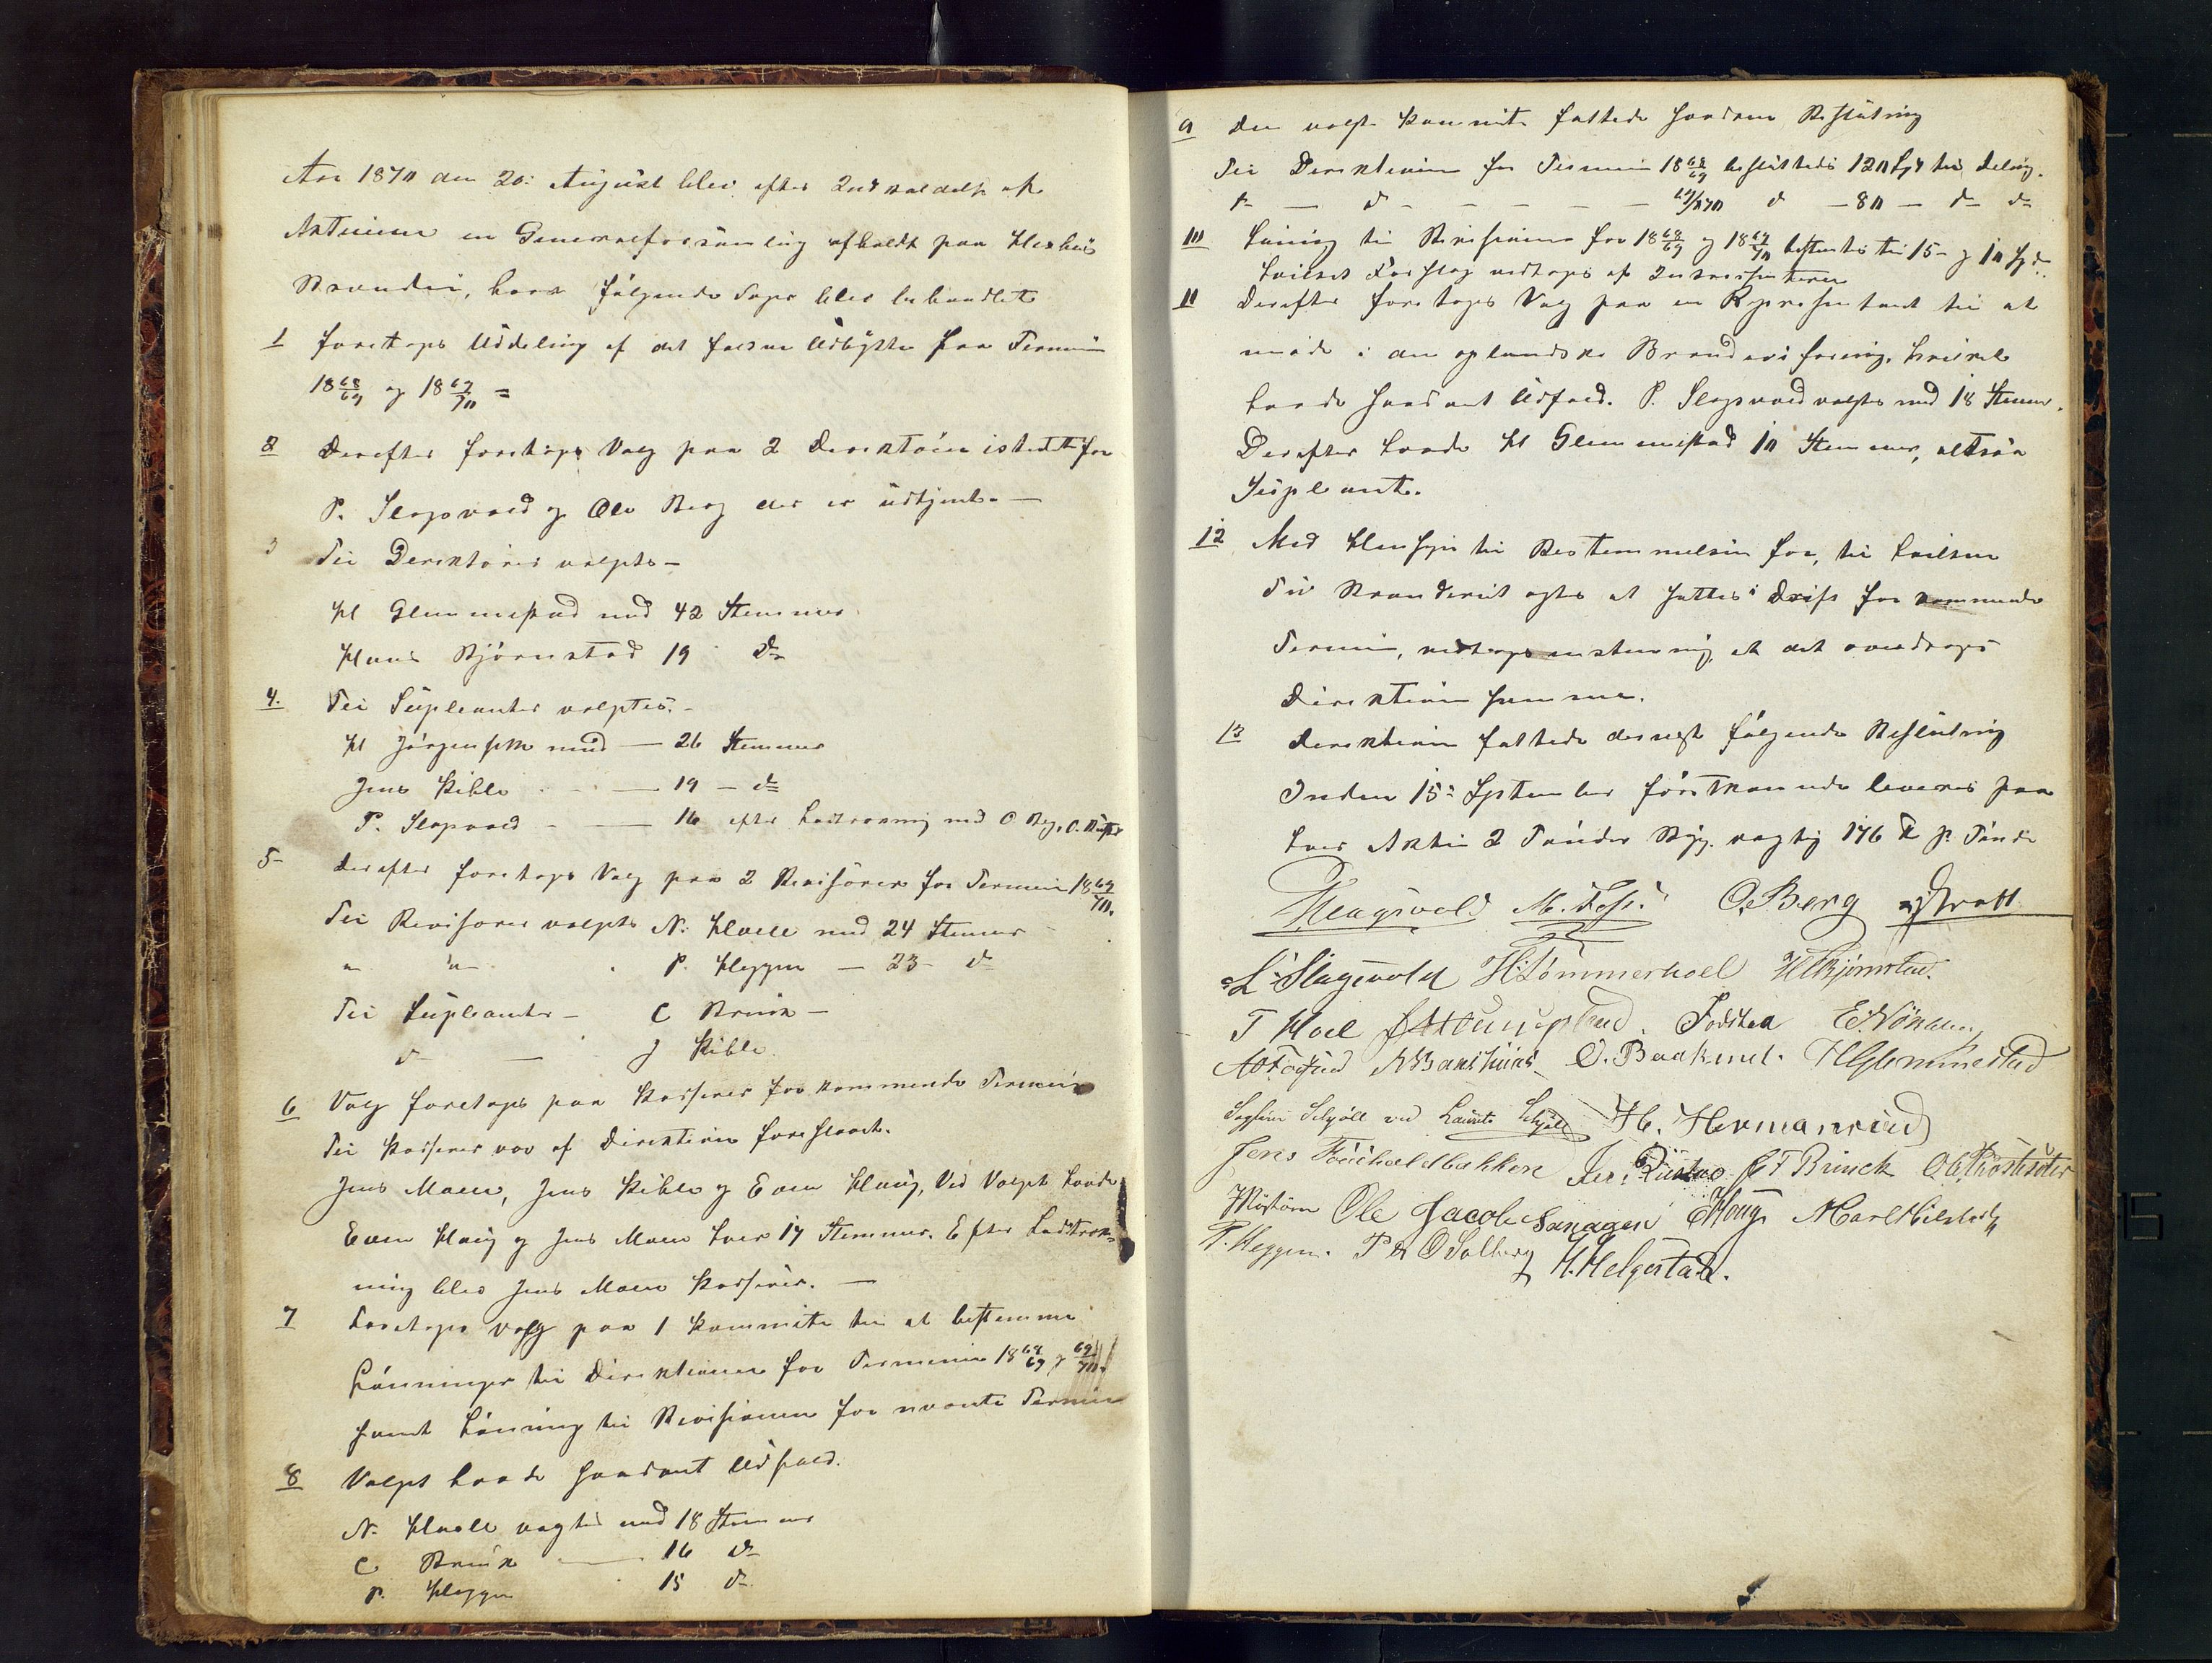 Aar 1870 den 20: August blev efter Indkaldelse af
Aktierne en Generalforsamling afholdt paa Hershus
Brænderi, hvor følgende Sager blev behandlet
1 foretoges Uddeling af det faldne Udbytte for Termin
18 68/69 og 18 69/70 =
2 Derefter foretoges Valg paa 2 Derektører istedetfor
P. Slagsvold og Ole Berg der er udtjent. —
3 Til Derektører valgtes —
H Glemmestad med 42 Stemmer
Hans Bjørnstad 19 do
4. Til Supleanter valgtes. -
H Jørgensen med — 26 Stemmer
Jens Kihle — 19 — do
P. Slagsvold — 16 efter Lodtrækning med O Berg,
5 Derefter foretoges Valg paa 2 Revisorer for Termin 18 69/70.
Til Revisorer valgtes N. Hoell med 24 Stemmer
" " P. Heggen — 23 do
Til Supleanter — C Brink —
do — J Kihle.
6 Valg foretoges paa Kasserer for kommende Termin
Til Kasserer var af Direktion foreslaaet.
Jens Moen, Jens Kihle og Even Haug, Ved Valget havde
Even Haug og Jens Moen hver 17 Stemmer. Efter Lodtræk-
ning blev Jens Moen Kasserer. —
7 Foretoges valg paa 1 Kommite til at bestemme
Lønninger til Direktionen for Terminen 18 68/69 & 69/70.
samt Lønning til Revisionen for nævnte Termin
8 Valget havde saadant Udfald.
N. Hoell valgtes med 18 Stemmer
C Brink — 16 do
P. Heggen 15 do
9 Den valgte Kommite fattede saadan Beslutning
Til Derektionen for Termin 18 68/69 besluttedes 120 Spd til Deling.
do — do - - - - - 69/1870 do — 80 — do do
10 Løning til Revisionen for 18 68/69 og 18 69/70 bestemtes til 15 og 10 Spd
hvilket Forslag vedtoges af Interessenterne
11 Derefter foretoges Valg paa en Representant til at
møde i den oplandske Brænderiforening, hvilket
havde saadant Udfald. P. Slagsvold valgtes med 18 Stemmer.
Derefter havde H Glemmestad 10 Stemmer, altsaa
Supleant.
12 Med Hensyn til Bestemmelsen for, til hvilken
Tid Brænderiet agtes at sættes i Drift for kommende
Termin, vedtoges enstemmig, at det overdroges
Direktion samme.
13 Derektion fattede dernæst følgende Beslutning
Inden 15de September førstkommende leveres paa
hver Aktie 2 Tønder Byg. vægtig 176 ℔ p. Tønde
P Slagsvold M. O. Berg
L Slagsvold H. Lømmerhoel H Bjørnstad.
T Hoel E. Nøkleby
O. Baakind. H Glemmestad
Schjøll ved Laurits Schjøll H. Hermanrud
Jens C F Brinck
Ole Jacobsen E Haug
P. Heggen. P & O Solberg H. Helgestad.